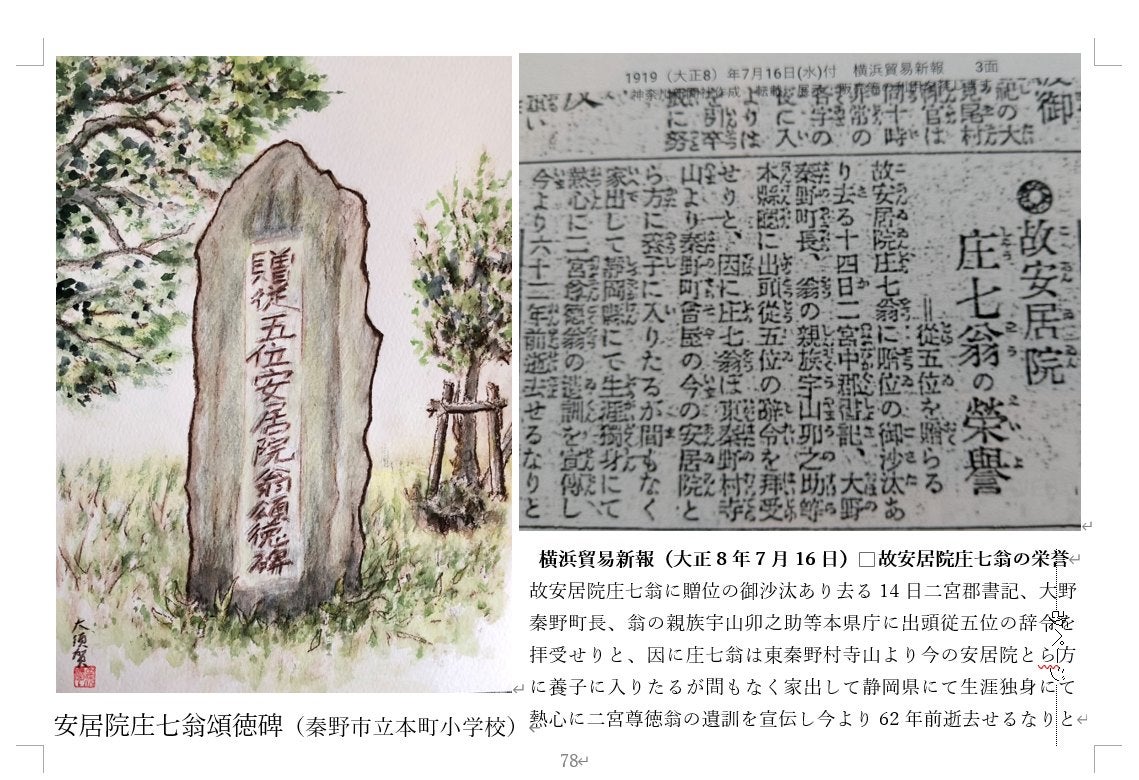 贈従五位安居院翁頌徳碑
大須賀
安居院庄七翁頌徳碑（秦野市立本町小学校）
1919（大正8）年7月16日(水)付　横浜貿易新報　3面
故安居院
庄七翁の榮譽
＝從五位を贈らる
故安居院庄七翁に贈位の御沙汰あ
り去る十四日二宮中郡書記、大野
秦野町長、翁の親族宇山卯之助等
本縣廳に出頭從五位の辭令を拜受
せりと、因に庄七翁は東秦野村寺
山より秦野町曾屋の今の安居院と
ら方に養子に入りたるが間もなく
家出して靜岡縣にて生涯獨身にて
熱心に二宮尊德翁の遺訓を宣傳し
今より六十二年前逝去せるなりと
横浜貿易新報（大正8年7月16日）□故安居院庄七翁の栄誉
故安居院庄七翁に贈位の御沙汰あり去る 14 日二宮郡書記、大野
秦野町長、翁の親族宇山卯之助等本県庁に出頭従五位の辞令を
拝受せりと、因に庄七翁は東秦野村寺山より今の安居院とら方
に養子に入りたるが間もなく家出して静岡県にて生涯独身にて
熱心に二宮尊徳翁の遺訓を宣伝し今より 62 年前逝去せるなりと
78